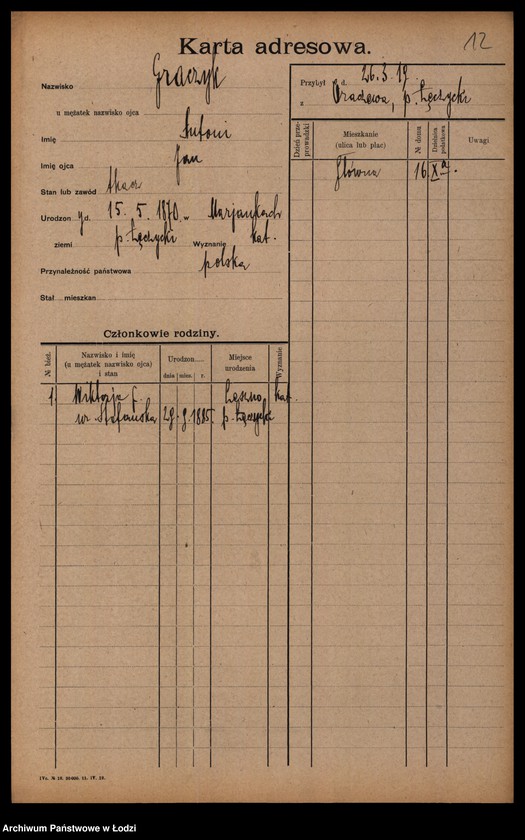 Karta adresowa.
12
Nazwisko Graczyk
u mężatek nazwisko ojca
Imię Antoni
Imię ojca Jan
Stan lub zawód tkacz
Urodzon y d. 15. 5. 1870. w Marjankach
ziemi p. Łęczycki Wyznanie kat.
Przynależność państwowa polska
Stał. mieszkan
Przybył d. 26.3.19.
z p. Łęczycki
Dzień przeprowadzki
Mieszkanie (ulica lub plac)
№ domu
Dzielnica podatkowa
Uwagi
Główna 16. X a.
Członkowie rodziny.
№ bież.
Nazwisko i imię
(u mężatek nazwisko ojca)
i stan
Urodzon
dnia mies. r.
Miejsce
urodzenia
Wyznanie
1. Wiktorja ż. kat.
ur. Stefańska 1885. p. Łęczycki
Archiwum Państwowe w Łodzi